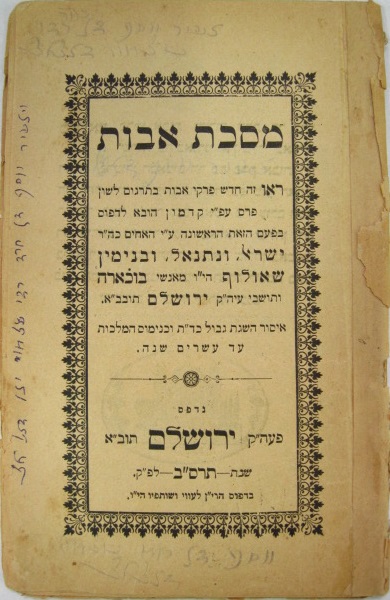 מסכת אבות
ראו זה חדש פרקי אבות בתרגום לשון
פרס עפ״י קדמון הובא לדפוס
בפעם הזאת הראשונה ע״י האחים כה״ר
ישראל, ונתנאל, ובנימין
שאולוף הי״ו מאנשי בוכארה
ותושבי עיה״ק ירושלם תובב״א.
איסור השגת גבול כד״ת ובנימוס המלכות
עד עשרים שנה.
נדפס
פעה״ק ירושלם תוב״א
שנת—תרס״ב—לפ״ק.
בדפוס הרי״ן לעווי ושותפיו הי״ו.